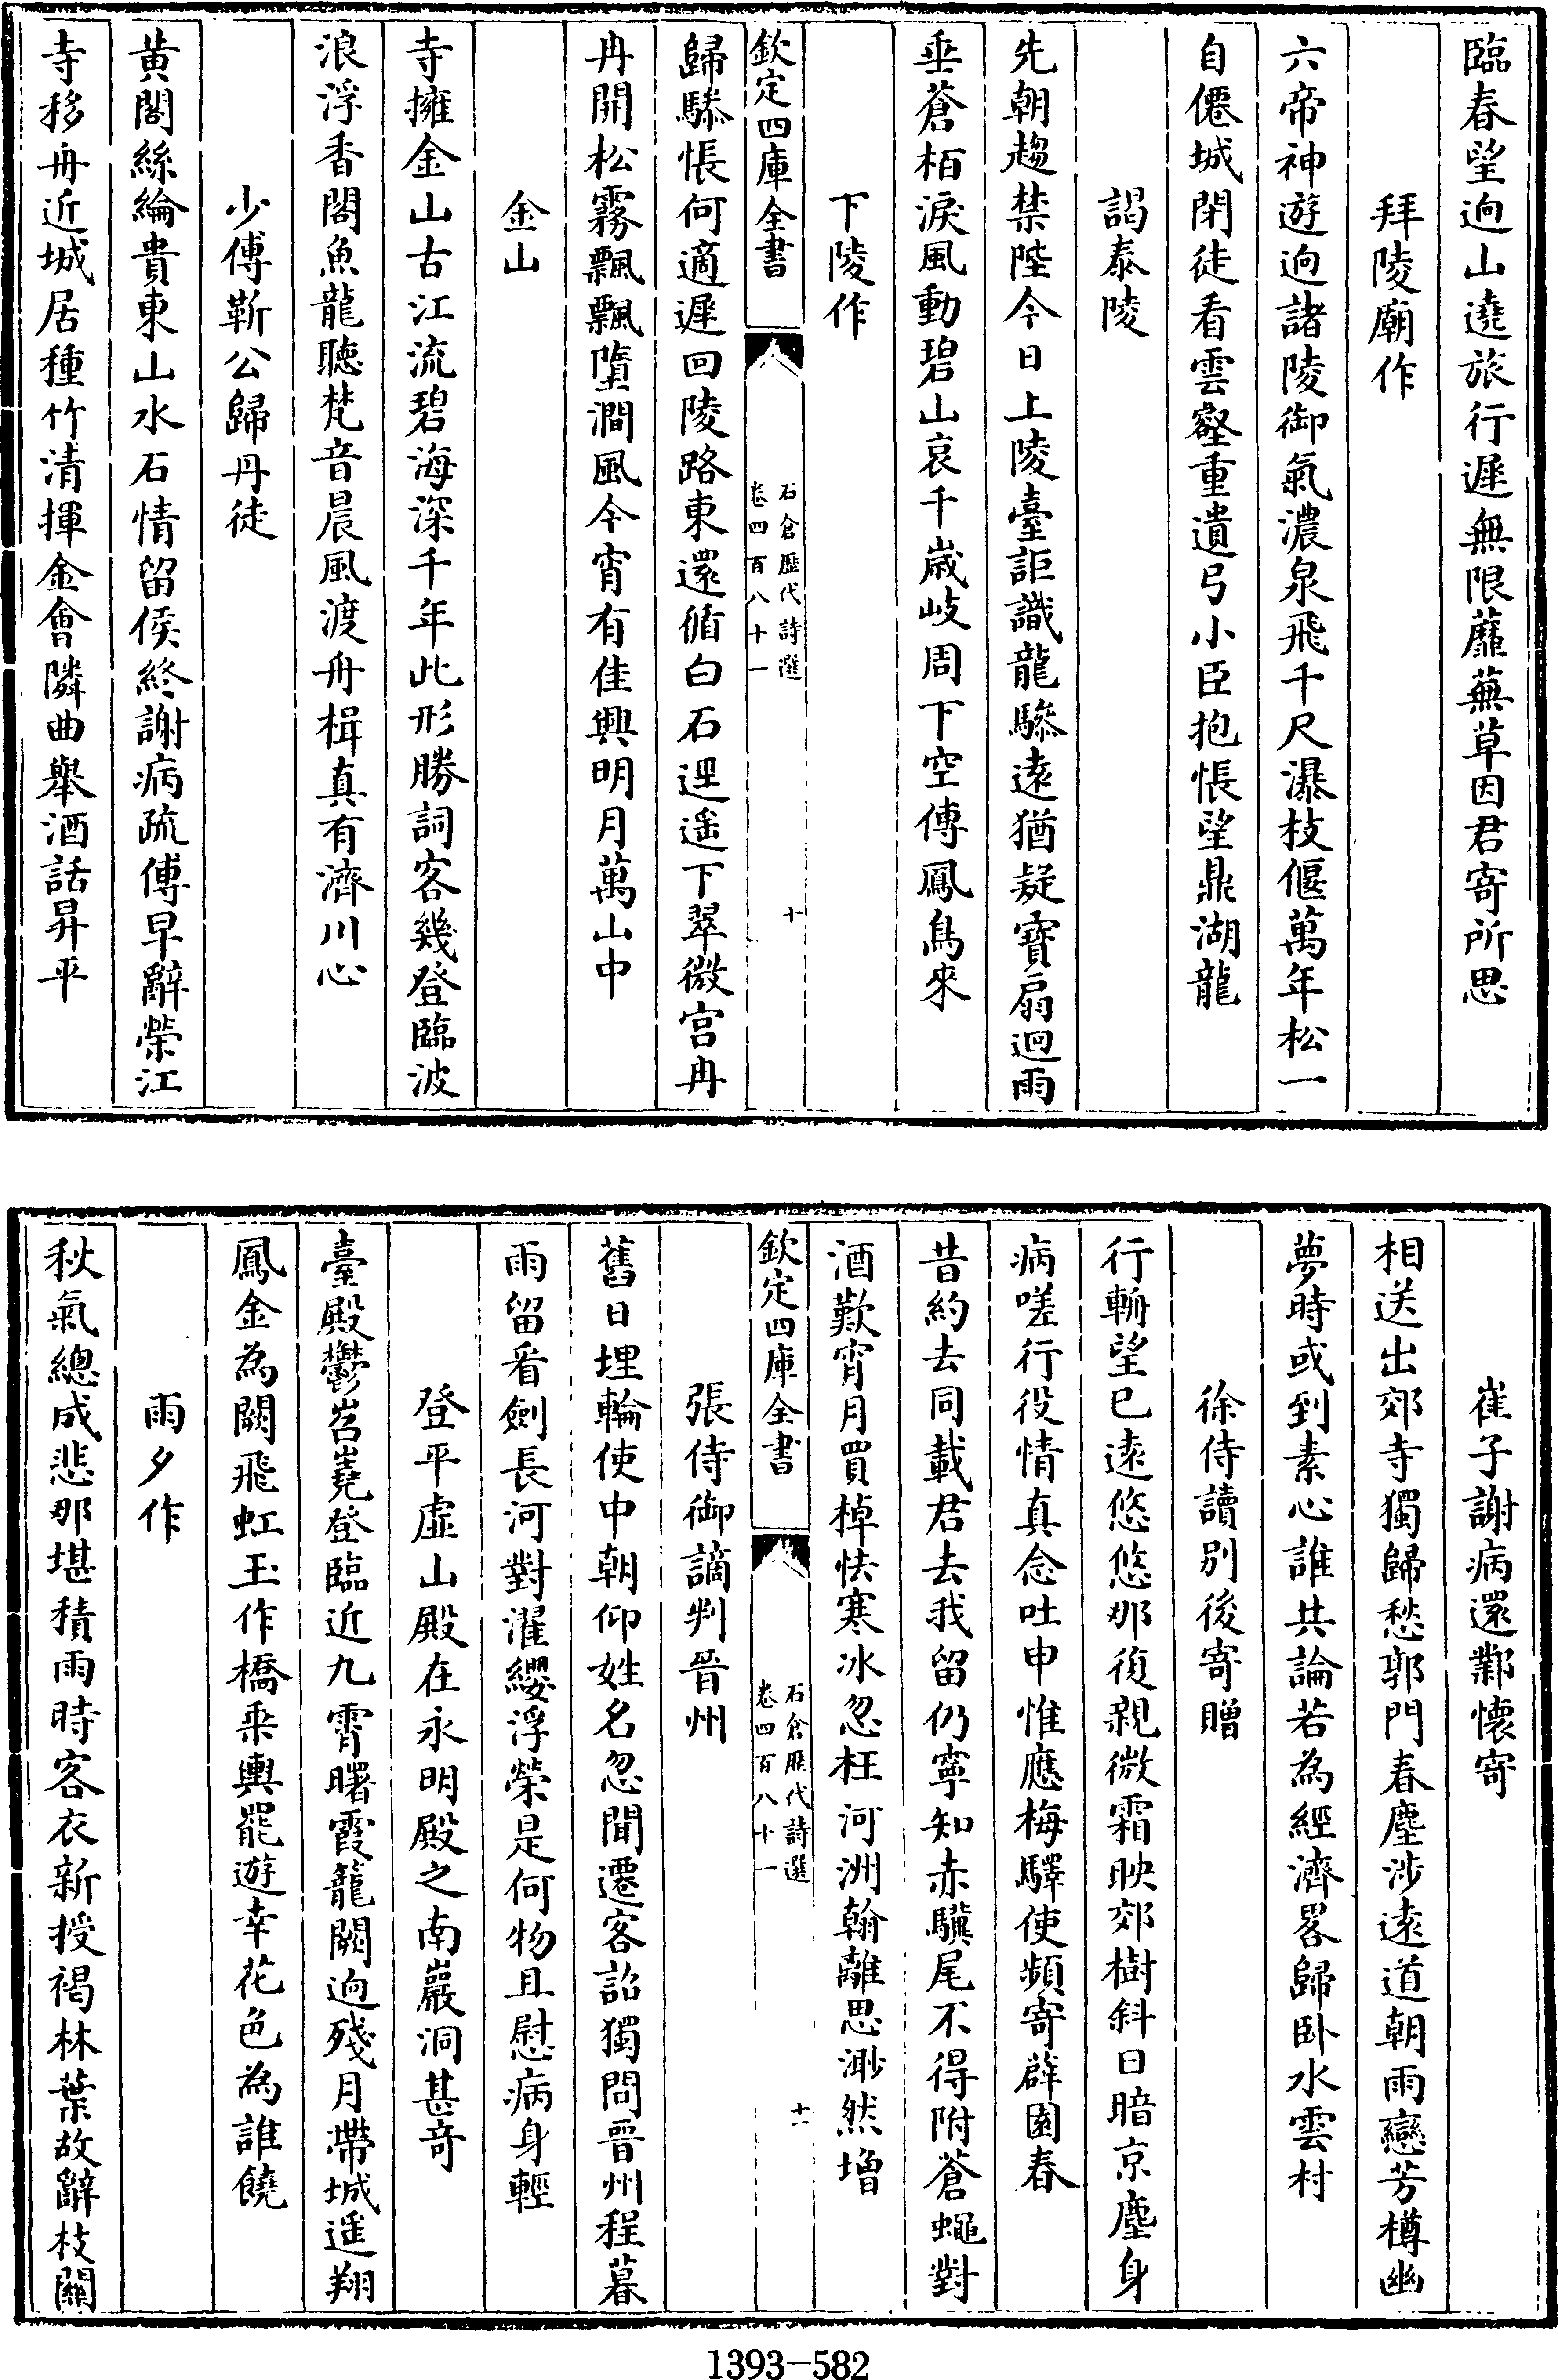 臨春望逈山遶旅行遲無限蘼蕪草因君寄所思
拜陵廟作
六帝神遊逈諸陵御氣濃泉飛千尺瀑枝偃萬年松一
自僊城閉徒看雲壑重遺弓小臣抱悵望鼎湖龍
謁泰陵
先朝趨禁陛今日上陵臺詎識龍驂遠猶疑寶扇迴雨
垂蒼栢淚風動碧山哀千歲岐周下空傳鳳鳥來
下陵作
欽定四庫全書
石倉歷代詩選
卷四百八十一
十
歸驂悵何適遲回陵路東還循白石逕遥下翠微宫冉
冉開松霧飄飄墮澗風今宵有佳興明月萬山中
金山
寺擁金山古江流碧海深千年此形勝詞客幾登臨波
浪浮香閣魚龍聽梵音晨風渡舟楫真有濟川心
少傅靳公歸丹徒
黄閣絲綸貴東山水石情留侯終謝病疏傅早辭榮江
寺移舟近城居種竹清揮金會隣曲舉酒話昇平
崔子謝病還鄴懐寄
相送出郊寺獨歸愁郭門春塵涉遠道朝雨戀芳樽幽
夢時或到素心誰共論若為經濟畧歸卧水雲村
徐侍讀别後寄贈
行輈望已遠悠悠那復親微霜映郊樹斜日暗京塵身
病嗟行役情真念吐申惟應梅驛使頻寄辟園春
昔約去同載君去我留仍寧知赤驥尾不得附蒼蠅對
酒歎宵月買棹怯寒冰忽枉河洲翰離思渺然增
欽定四庫全書
石倉歷代詩選
卷四百八十一
十一
張侍御謫判晉州
舊日埋輪使中朝仰姓名忽聞遷客詔獨問晉州程暮
雨留看劍長河對濯纓浮榮是何物且慰病身輕
登平虚山殿在永明殿之南巖洞甚奇
臺殿鬱岧嶤登臨近九霄曙霞籠闕逈殘月帶城遥翔
鳳金為闕飛虹玉作橋乘輿罷遊幸花色為誰饒
雨夕作
秋氣總成悲那堪積雨時客衣新授褐林葉故辭枝關
1393-582